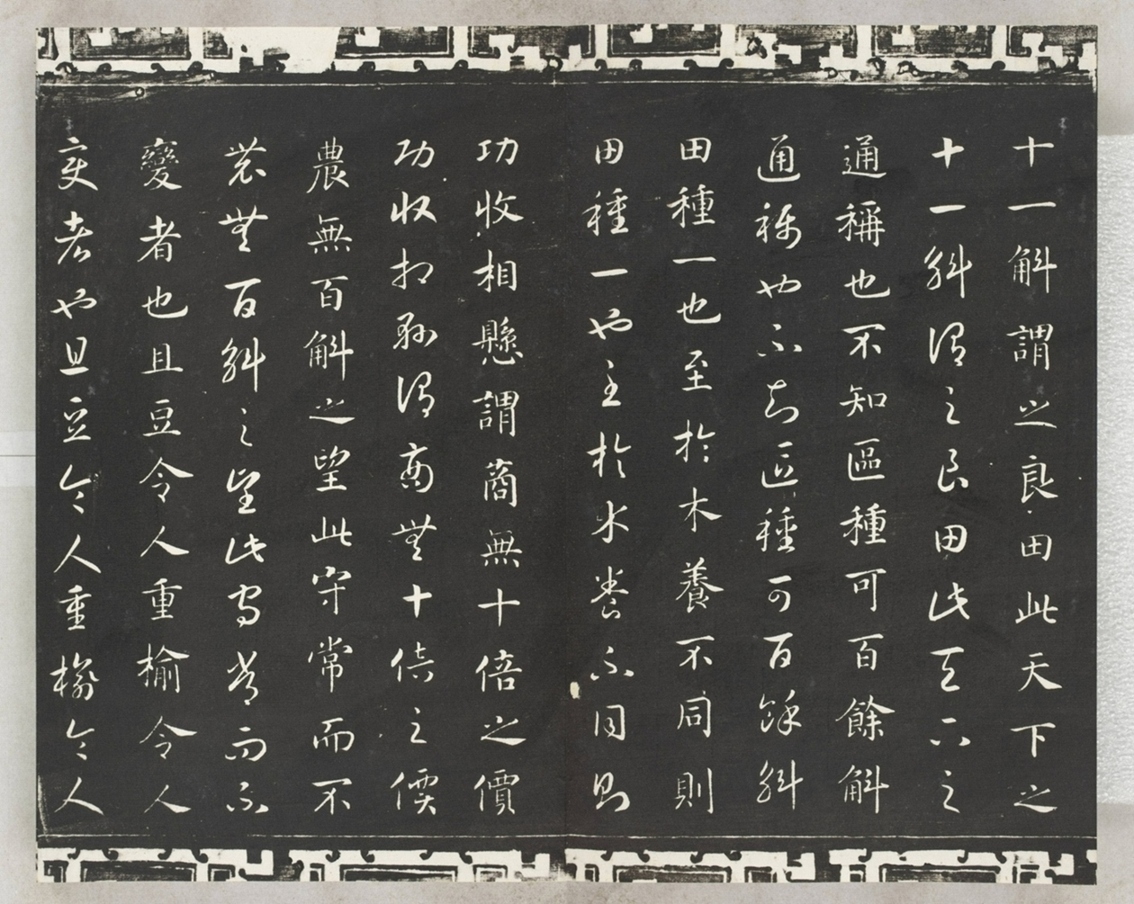 十一斛謂之良田此天下之
十一斛謂之良田此天下之
通稱也不知區種可百餘斛
通稱也不知區種可百餘斛
田種一也至於木養不同則
田種一也至於木養不同則
功收相懸謂商無十倍之價
功收相懸謂商無十倍之價
農無百斛之望此守常而不
農無百斛之望此守常而不
變者也且豆令人重榆令人
變者也且豆令人重榆令人